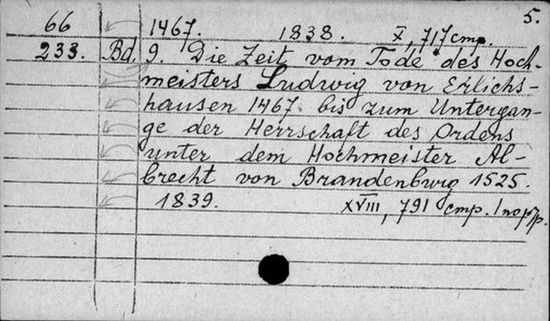 5.
66 1467. 1838. X, 717 cmp.
233. Bd. 9. Die Zeit vom Tode des Hoch-
meisters Ludwig von Erlichs-
hausen 1467. bis zum Untergan-
ge der Herrschaft des Ordens
unter dem Hochmeister Al-
brecht von Brandenburg 1525.
1839. XVIII, 791 cmp.